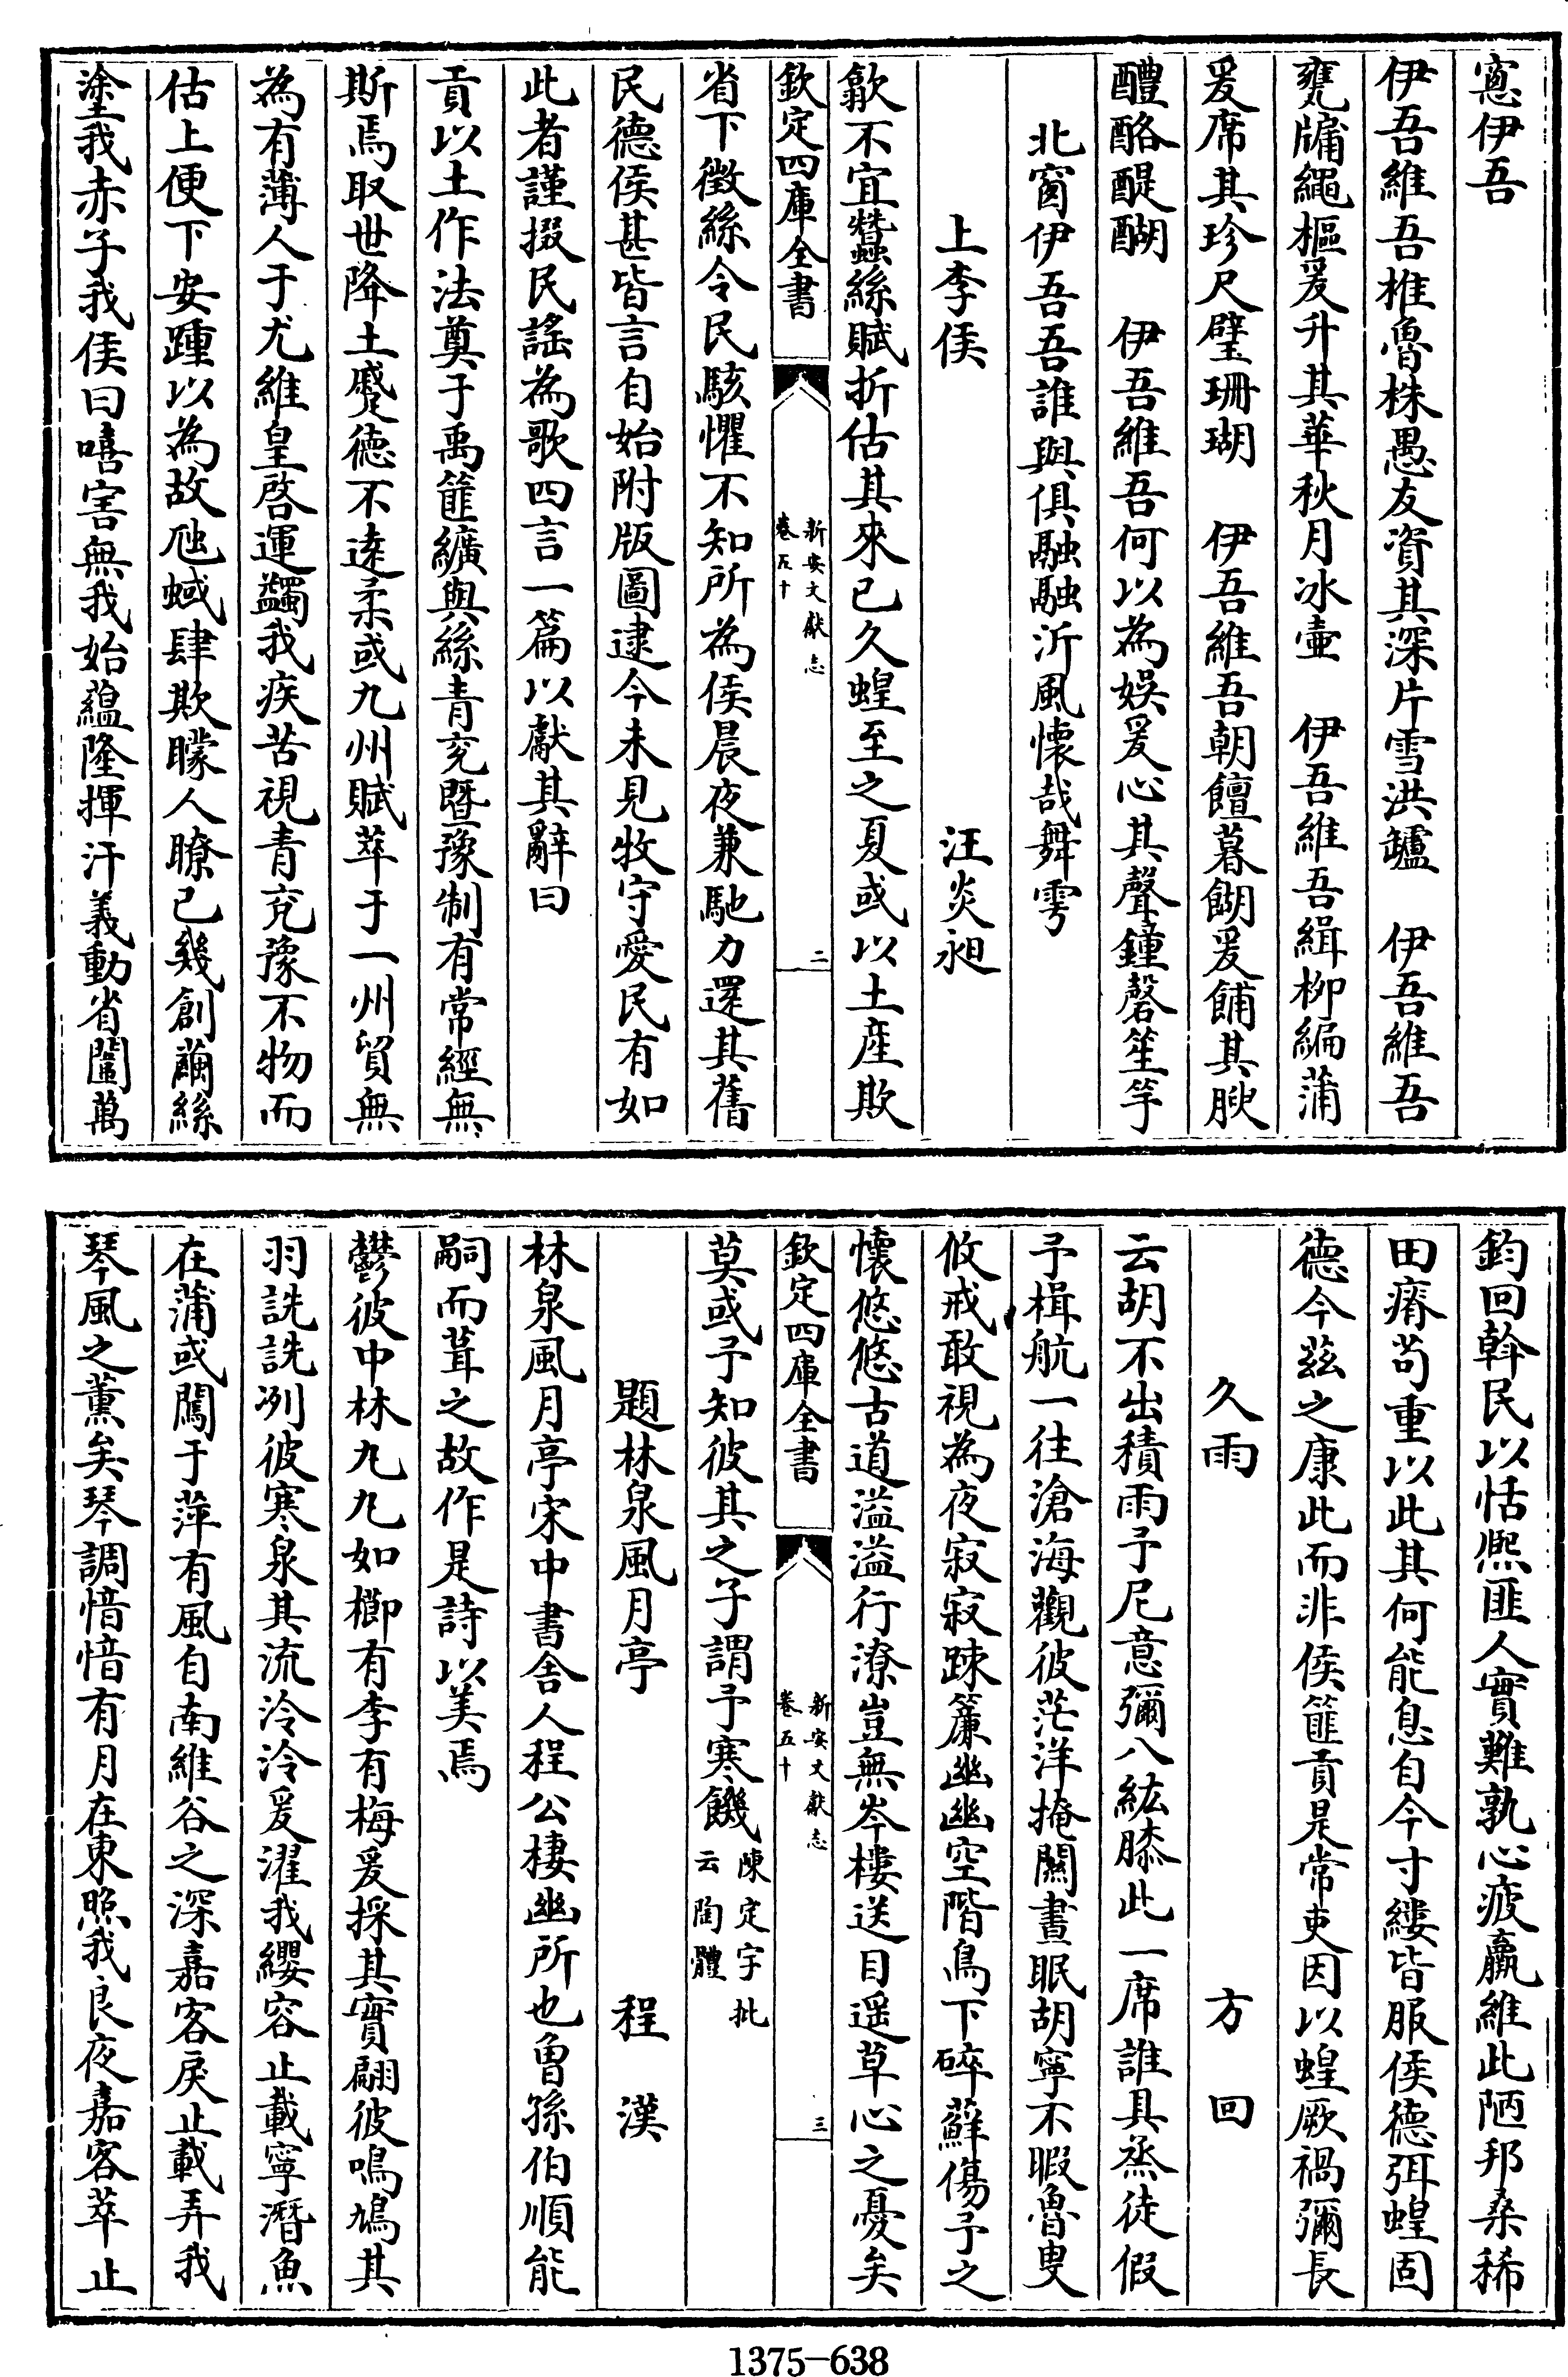 窻伊吾
伊吾維吾椎魯株愚友資其深片雪洪罏　伊吾維吾
甕牖繩樞爰升其華秋月冰壷　伊吾維吾緝栁編蒲
爰席其珍尺璧珊瑚　伊吾維吾朝饘暮餬爰餔其腴
醴酪醍醐　伊吾維吾何以為娛爰心其聲鐘磬笙竽
北窗伊吾吾誰與俱融融沂風懷哉舞雩
上李侯　汪炎昶
歙不宜蠶絲賦折估其來已久蝗至之夏或以土産欺
欽定四庫全書
新安文獻志
卷五十
二
省下徴絲令民駭懼不知所為侯晨夜兼馳力還其舊
民德侯甚皆言自始附版圖逮今未見牧守愛民有如
此者謹掇民謠為歌四言一篇以獻其辭曰
貢以土作法奠于禹篚纊與絲青兖暨豫制有常經無
斯焉取世降土蹙德不逺柔或九州賦萃于一州貿無
為有薄人于尤維皇啓運蠲我疾苦視青兖豫不物而
估上便下安踵以為故虺蜮肆欺矇人瞭已幾創繭絲
塗我赤子我侯曰嘻害無我始藴隆揮汗義動省闔萬
鈞回斡民以恬熈匪人實難孰心疲羸維此陋邦桑稀
田瘠苟重以此其何能息自今寸縷皆服侯德弭蝗固
德今兹之康此而非侯篚貢是常吏因以蝗厥禍彌長
久雨　方回
云胡不出積雨予尼意彌八紘膝此一席誰具烝徒假
予楫航一往滄海觀彼茫洋掩關晝眠胡寧不暇魯叟
攸戒敢視為夜寂寂踈簾幽幽空階鳥下碎蘚傷予之
懷悠悠古道溢溢行潦豈無岑樓送目遥草心之憂矣
欽定四庫全書
新安文獻志
卷五十
三
莫或予知彼其之子謂予寒饑陳定宇批云陶體
題林泉風月亭　程漢
林泉風月亭宋中書舎人程公棲幽所也曽孫伯順能
嗣而葺之故作是詩以美焉
鬱彼中林九九如櫛有李有梅爰採其實翩彼鳴鳩其
羽詵詵冽彼寒泉其流泠泠爰濯我纓容止載寧潛魚
在蒲或闖于萍有風自南維谷之深嘉客戾止載弄我
琴風之薫矣琴調愔愔有月在東照我良夜嘉客萃止
1375-638